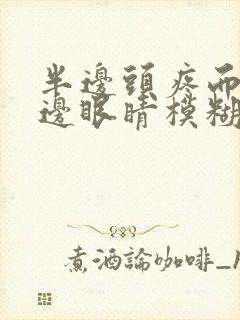 半邊頭疼而
邊眼睛模糊
煮酒論咖啡_1